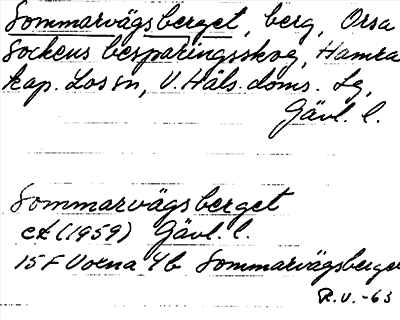 Sommarvägsberget, berg, Orsa
Sockens besparingsskog, Hamra
kap. Los sn, V. Häls. doms. Lg,
Gävl. l.
Sommarvägsberget
ek (1959) Gävl. l.
15F Voxna 4b Sommarvägsberget
R.U. -63